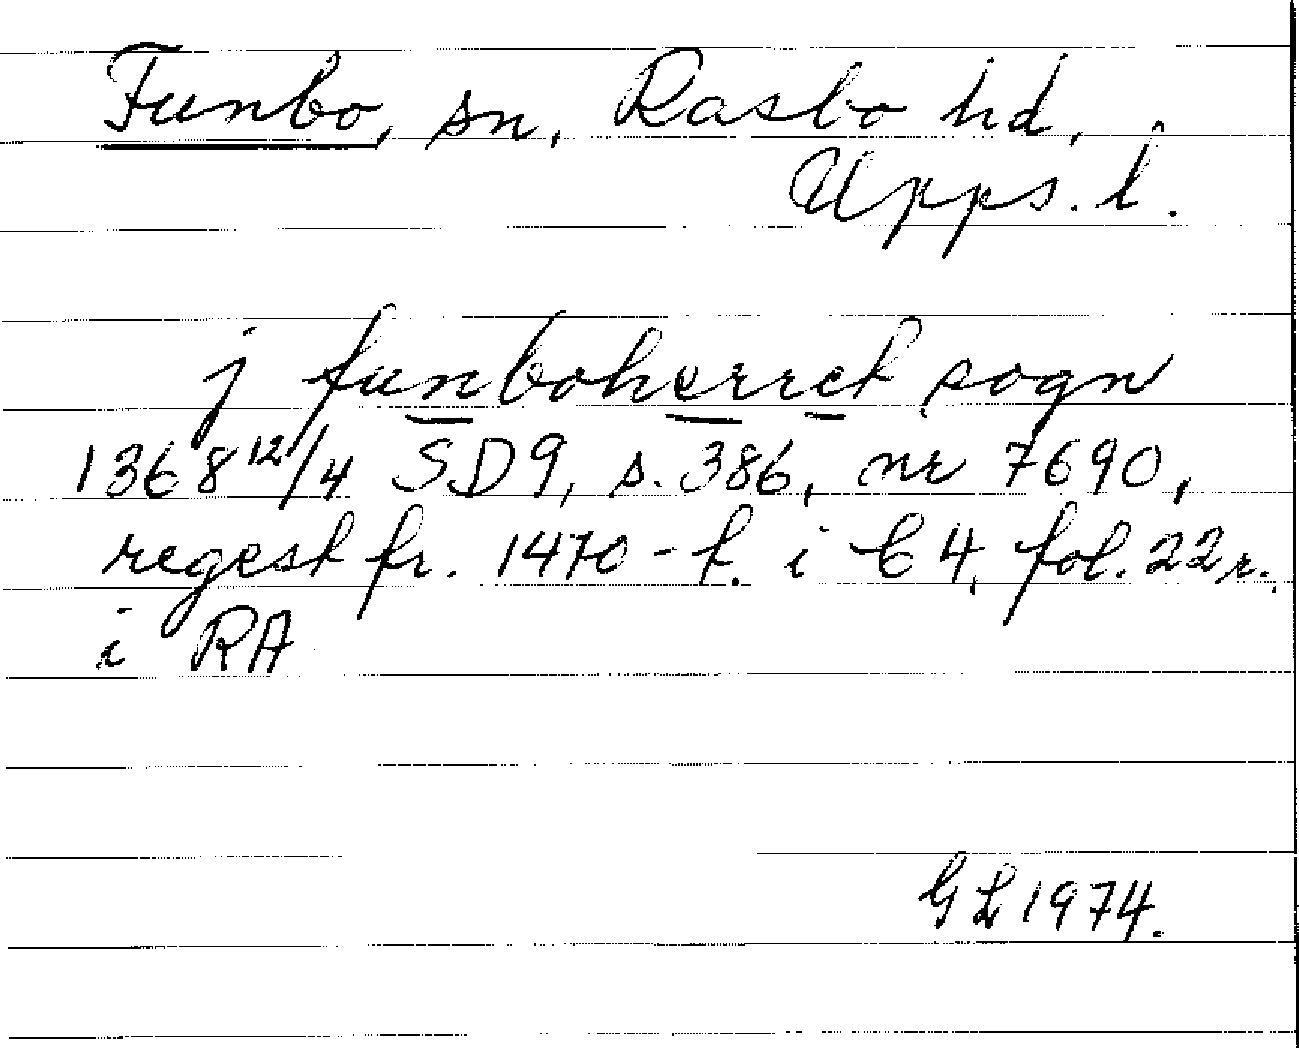 Funbo, sn, Rasbo hd,
Upps. l.
j funboherret sogn
1368 12/4 SD9, s. 386, nr 7690,
regest fr. 1470-t. i C 4, fol. 22 r.
i RA
GL 1974.